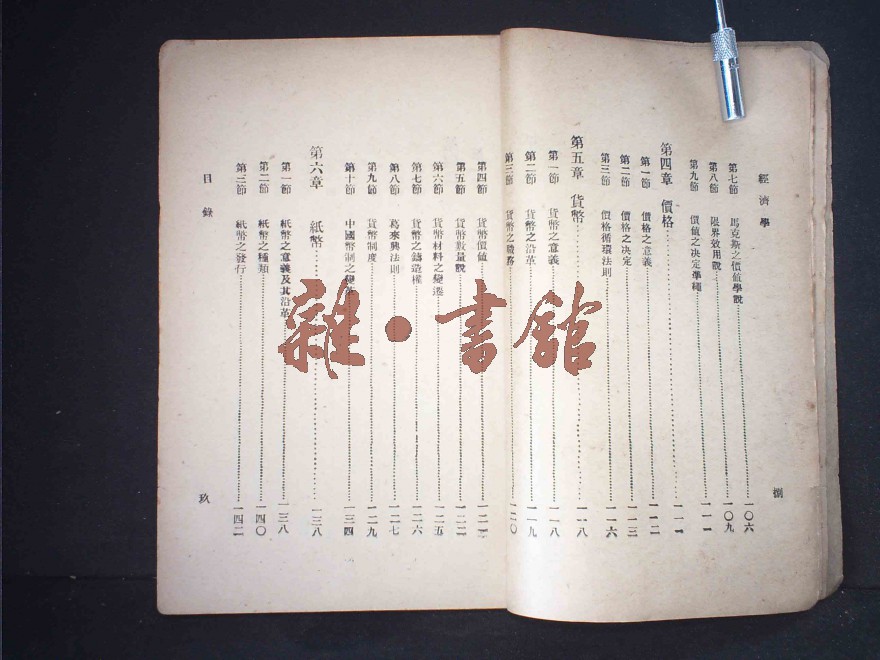 經濟學
第七節 馬克斯之價值學說 一〇六
第八節 限界效用說 一〇九
第九節 價值之決定準繩 一一一
第四章 價格 一一二
第一節 價格之意義 一一二
第二節 價格之決定 一一三
第三節 價格循環法則 一一六
第五章 貨幣 一一八
第一節 貨幣之意義 一一八
第二節 貨幣之沿革 一一九
第三節 貨幣之職務 一二〇
捌
第四節 貨幣價値
第五節 貨幣數量說 一二二
第六節 貨幣材料之變遷 一二五
第七節 貨幣之鑄造權 一二六
第八節 葛來興法則 一二七
第九節 貨幣制度 一二九
第十節 中國幣制之變 一三四
第六章 紙幣 一三八
第一節 紙幣之意義及其沿革 一三八
第二節 紙幣之種類 一四〇
第三節 紙幣之發行 一四二
目錄
玖
雜·書館